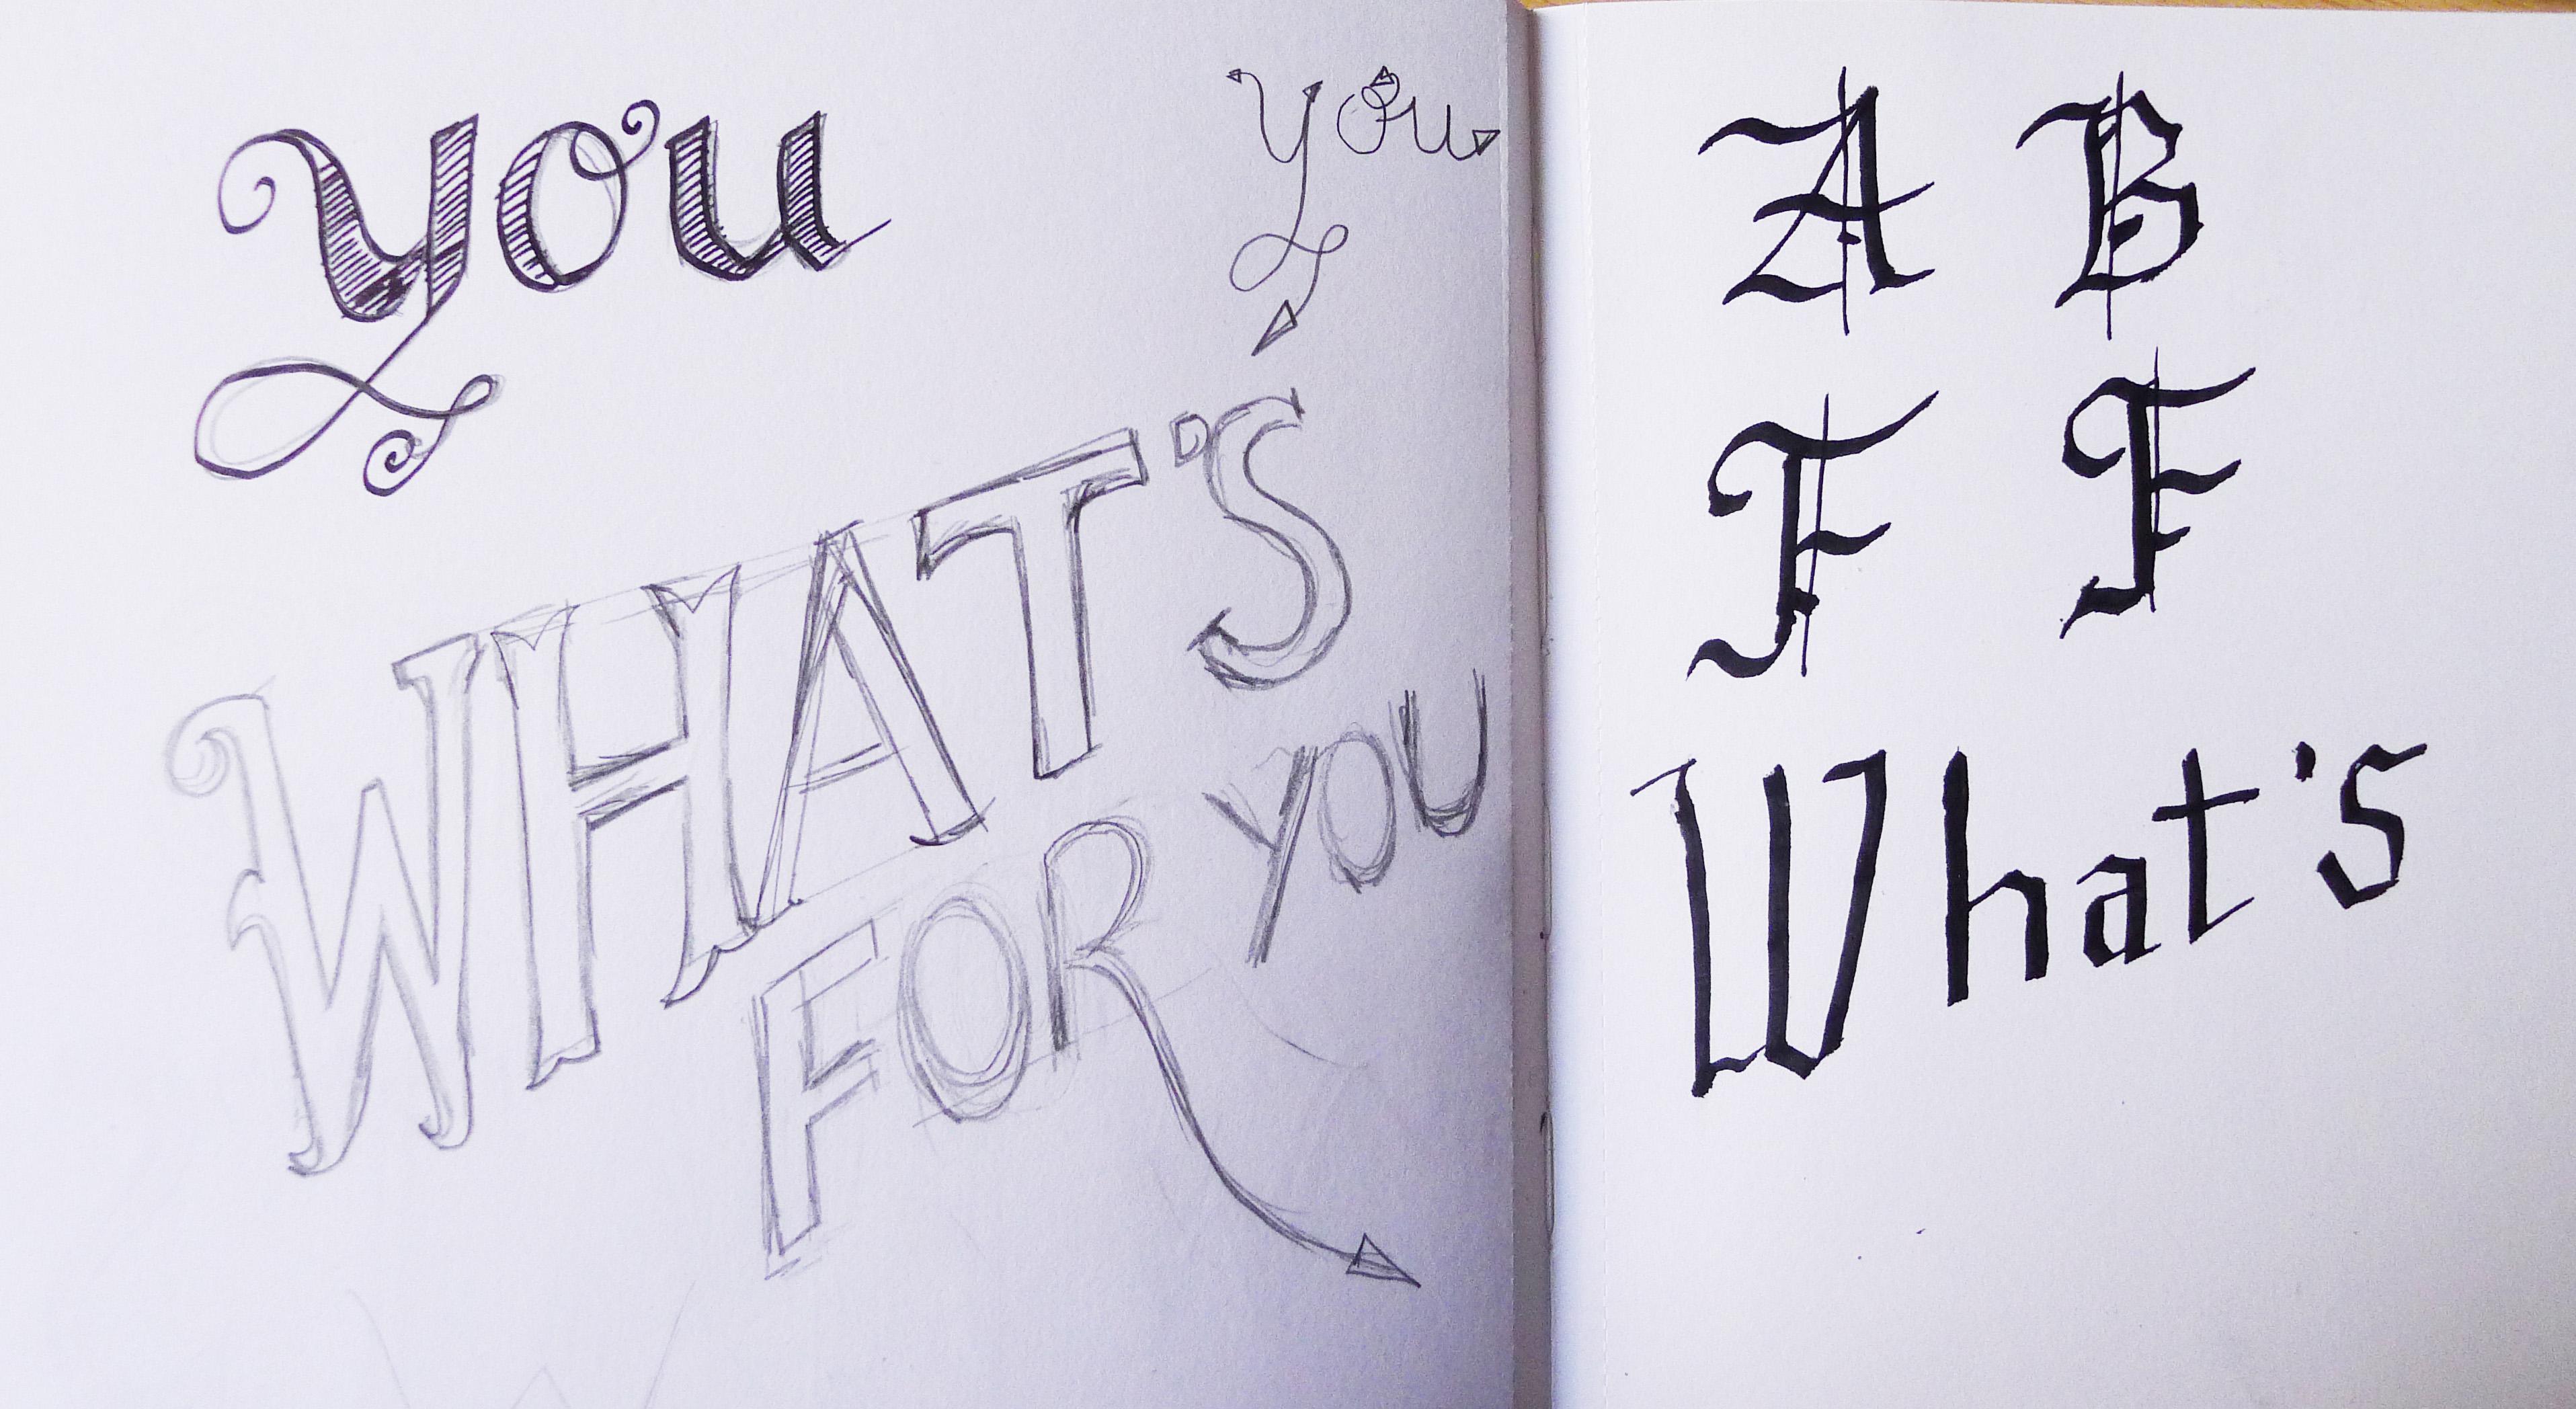 you
you
WHAT'S
FOR YOU
A B
F F
What's